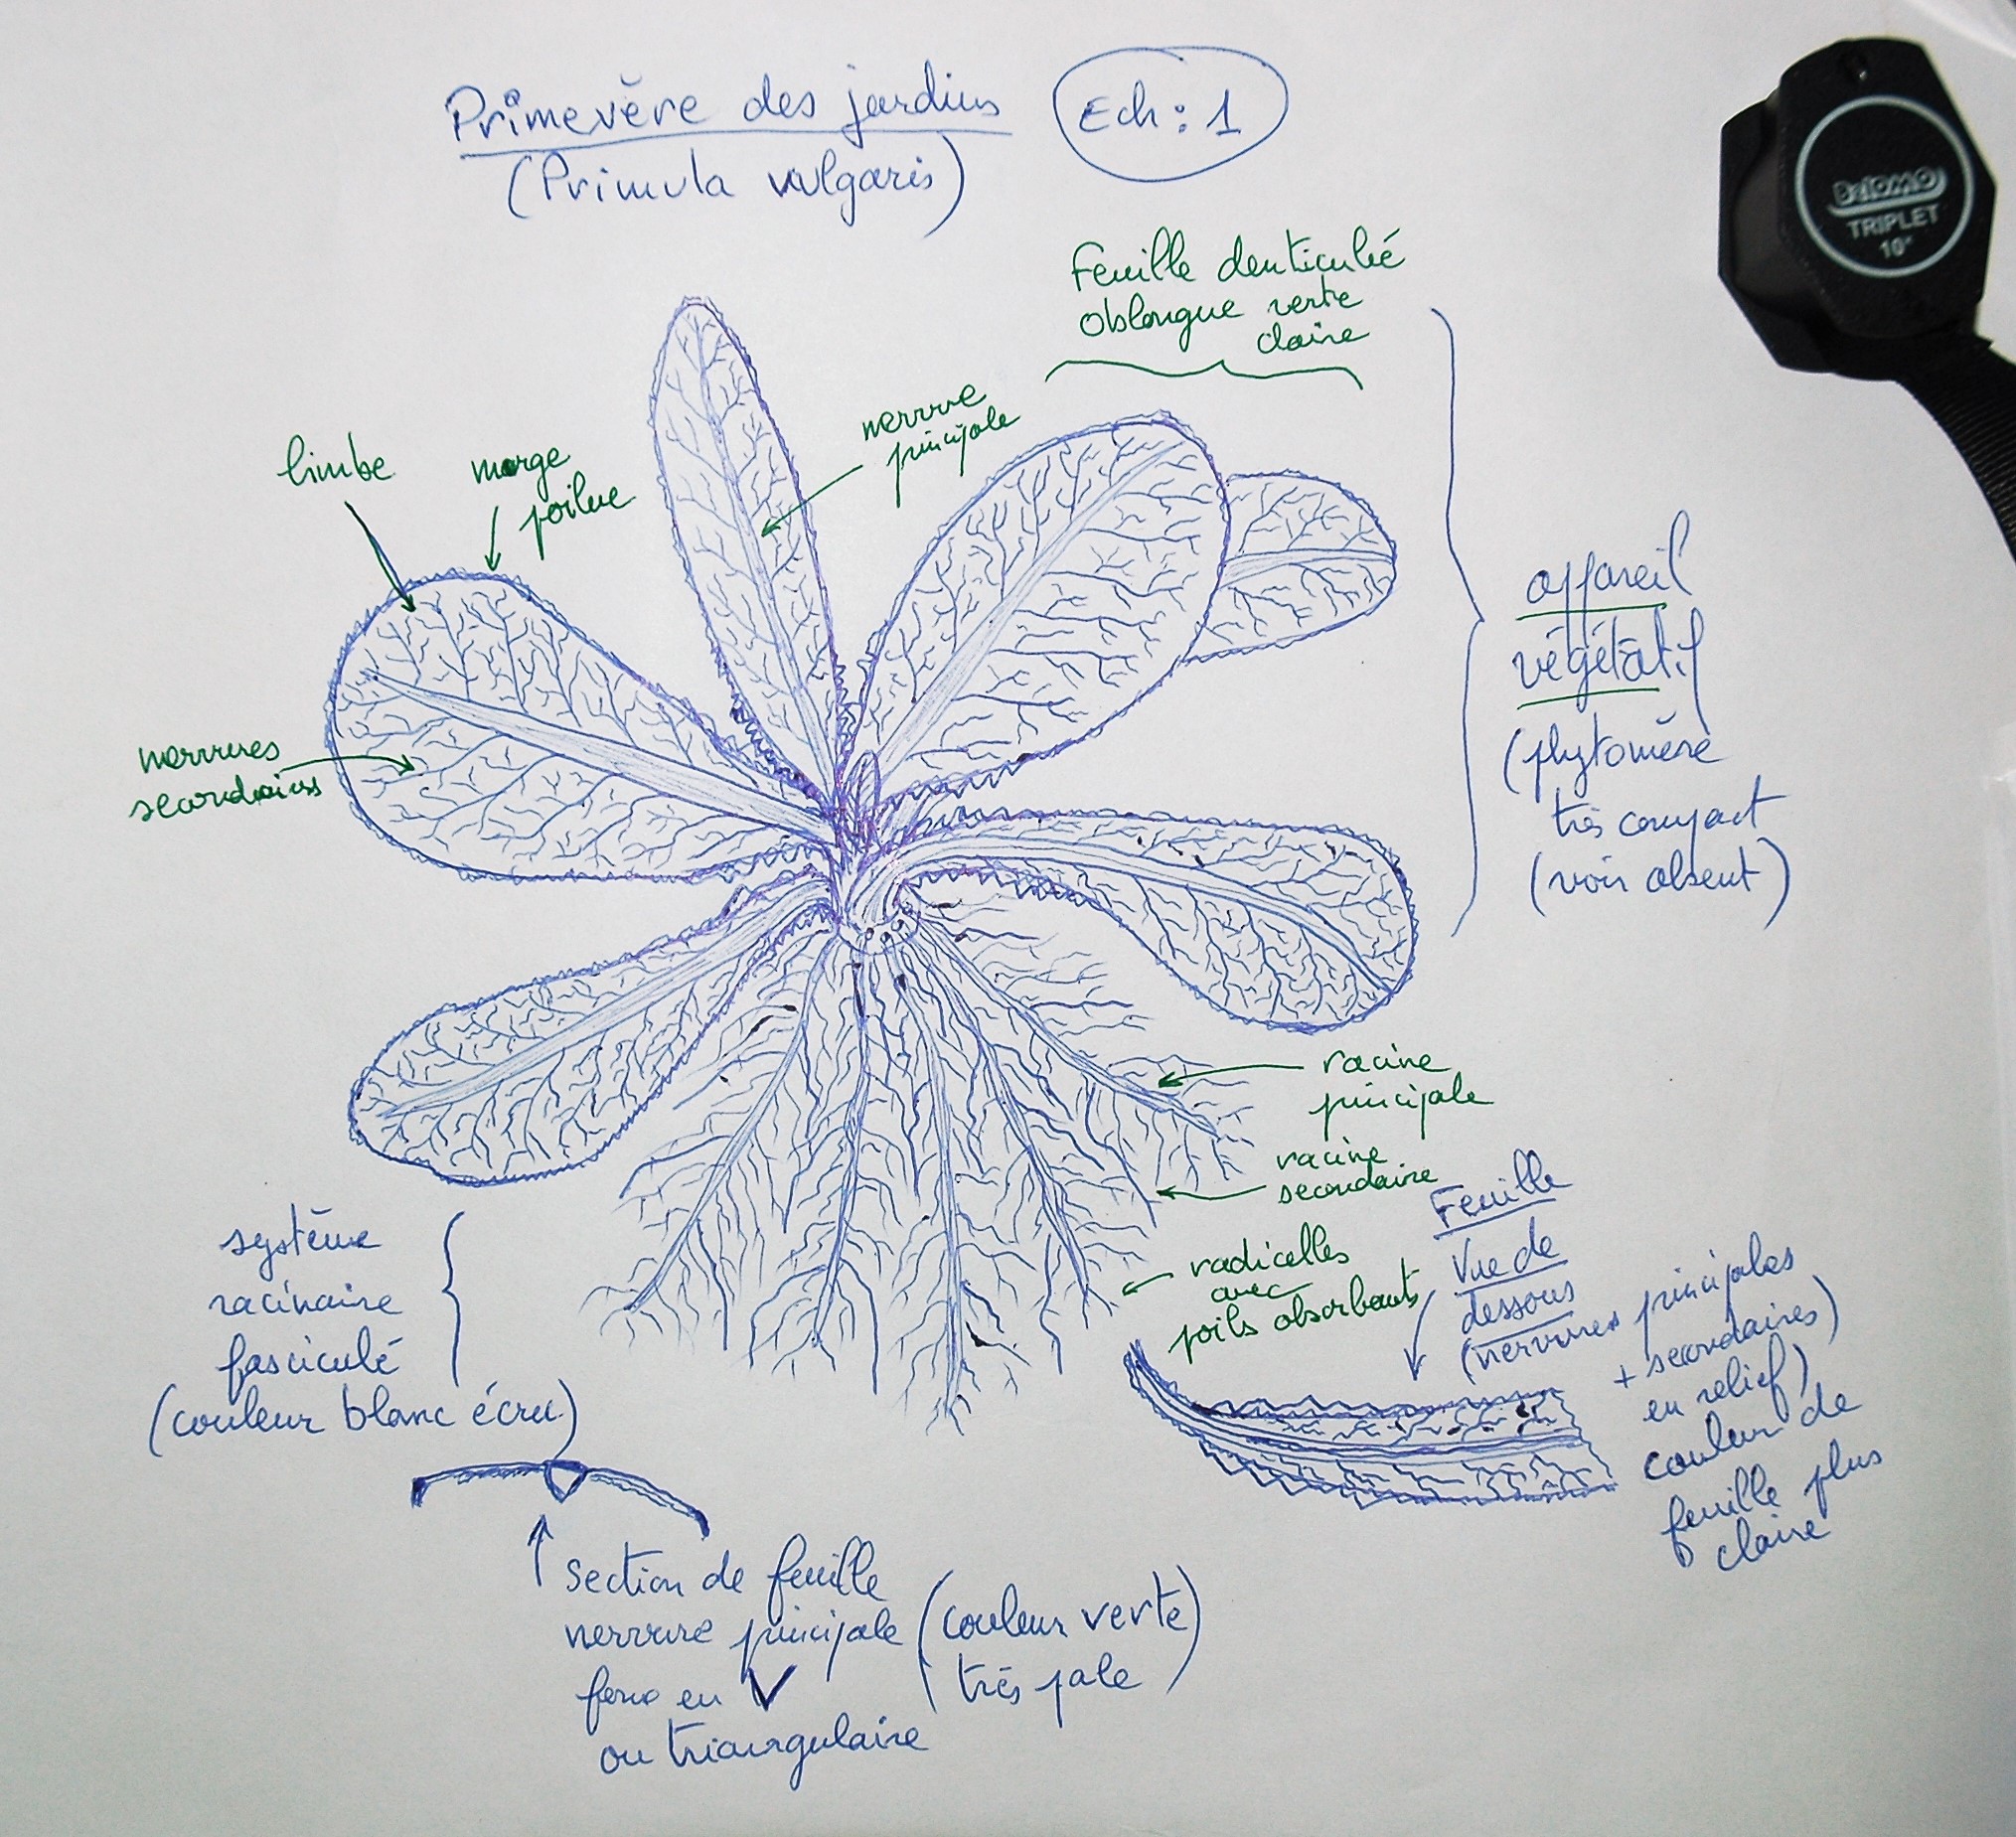 Primevère des jardins
Ech: 1
(Primula vulgaris)
BelOMO
TRIPLET
10×
Feuille denticulée
oblongue verte
claire
nervure
principale
limbe
marge
poilue
nervures
secondaires
appareil
végétatif
(phytomère
très compact
(voir absent)
racine
principale
racine
secondaire
radicelles
avec
poils absorbants
système
racinaire
fasciculé
(couleur blanc écru)
Feuille
Vue de
dessous
(nervures principales
+ secondaires)
en relief)
couleur de
feuille plus
claire
section de feuille
nervure principale
en V
ou triangulaire
(couleur verte)
très pale